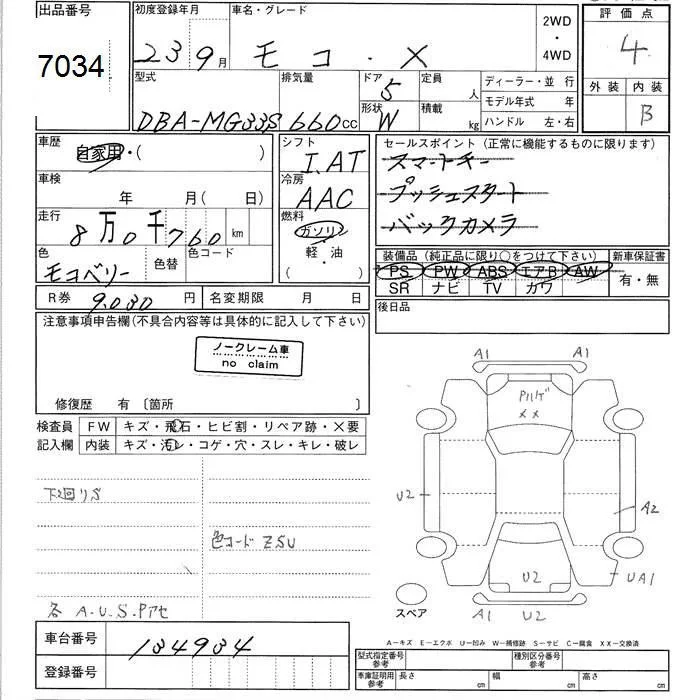 出品番号 初度登録年月 車名・グレード 2WD 評価点
7034 23 9月 モコ・X ・ 4WD 4
型式 排気量 ドア 5 定員 人 ディーラー・並行 外装 内装
DBA-MG33S 660cc 形状 W 積載 kg モデル年式 年 B
ハンドル 左・右
車歴 自家用・( ) シフト I.AT セールスポイント(正常に機能するものに限ります)
車検 年 月( 日) 冷房 AAC スマートキー
走行 8万0千760km 燃料 ガソリン プッシュスタート
軽・油 バックカメラ
色 モコベリー 色替 色コード ( ) 装備品(純正品に限り○をつけて下さい) 新車保証書
PS PW ABS エアB AW 有・無
SR ナビ TV カワ
R券 9.030円 名変期限 月 日 後日品
注意事項申告欄(不具合内容等は具体的に記入して下さい)
ノークレーム車
no claim
A1 A1
修復歴 有 〔箇所 〕
検査員 FW キズ・飛石・ヒビ割・リペア跡・X要
記入欄 内装 キズ・汚レ・コゲ・穴・スレ・キレ・破レ
××
下廻りS U2 A2
色コード ZSU
U2 UA1
各 A.U.S.Pアセ スペア A1 U2
車台番号 134934 A-キズ E-エクボ U-凹み W-補修跡 S-サビ C-腐食 XX-交換済
登録番号 型式指定番号 参考 種別区分番号 参考
車庫証明用 参考 長さ cm 幅 cm 高さ cm